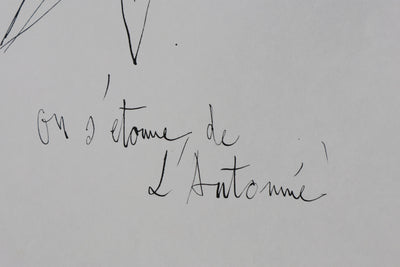 on s'étonne, de
L'Antonmé